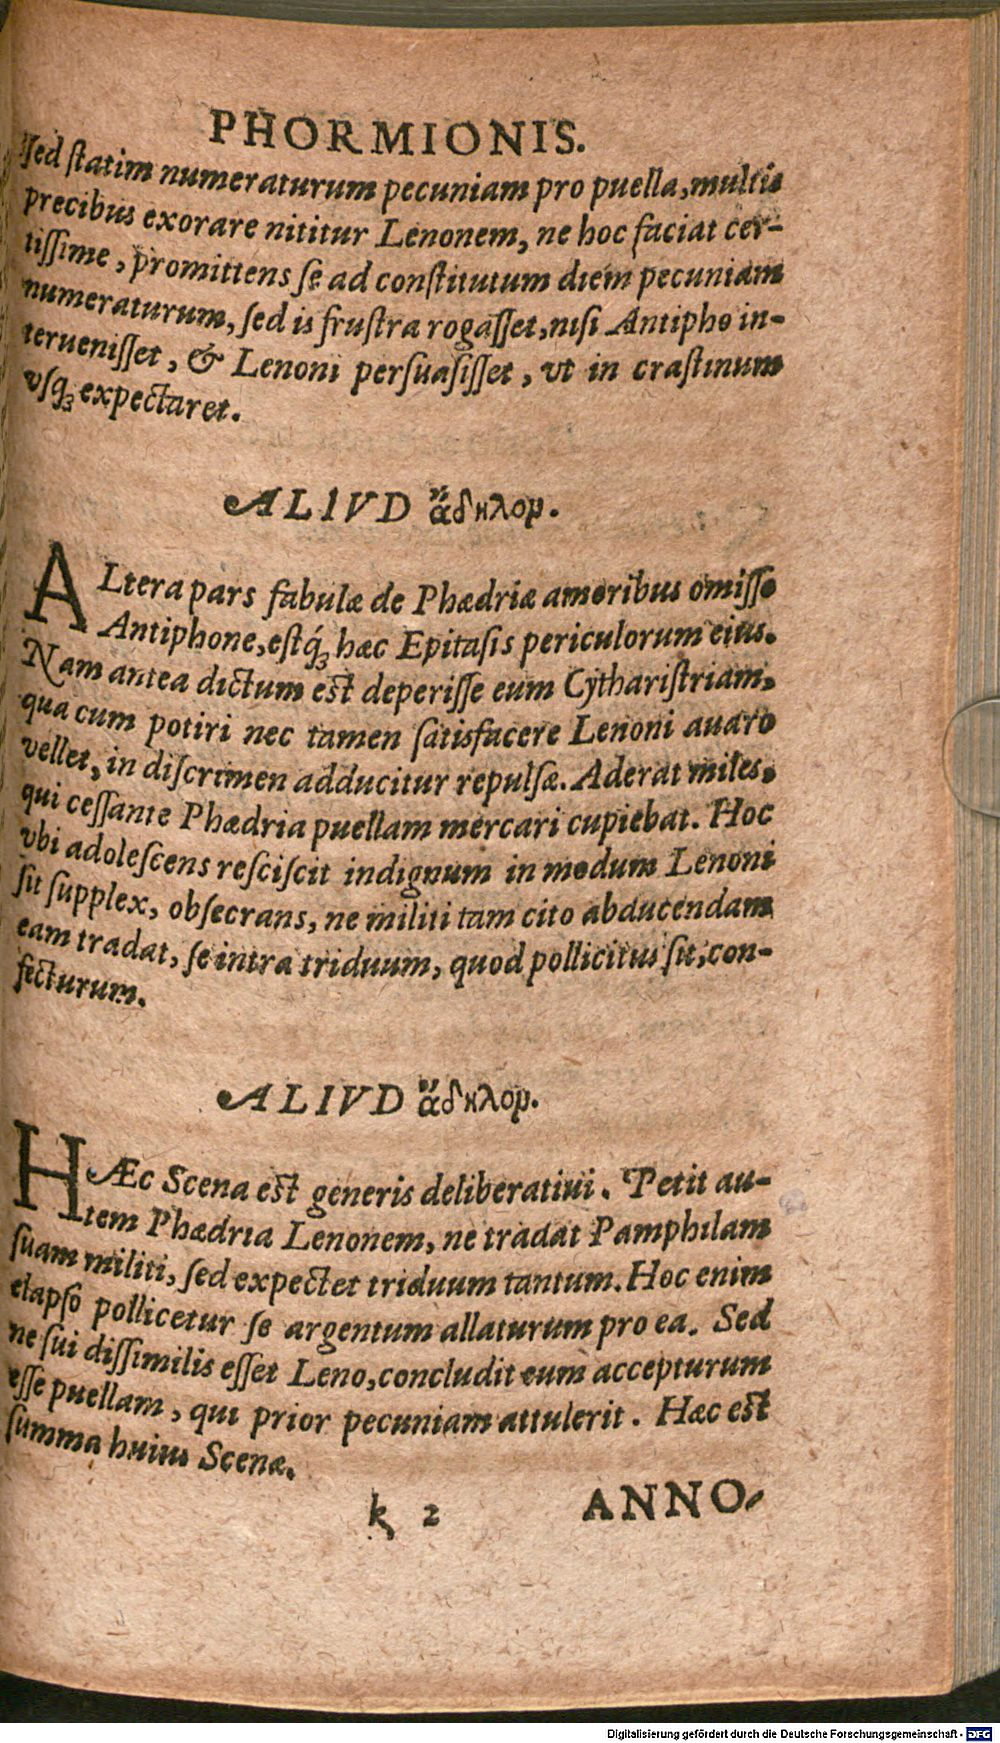 PHORMIONIS.
ſed ſtatim numeraturum pecuniam pro puella, multis
precibus exorare nititur Lenonem, ne hoc faciat cer-
tiſſime, promittens ſe ad conſtitutum diem pecuniam
numeraturum, ſed is fruſtra rogaſſet, niſi Antipho in-
terueniſſet, & Lenoni perſuaſiſſet, vt in craſtinum
vſq́; expectaret.
ALIVD ἄδηλομ.
ALtera pars fabulæ de Phædriæ amoribus omiſſo
Antiphone, eſtq́; hæc Epitaſis periculorum eius.
Nam antea dictum eſt deperiſſe eum Cythariſtriam,
qua cum potiri nec tamen ſatisfacere Lenoni auaro
vellet, in diſcrimen adducitur repulſæ. Aderat miles,
qui ceſſante Phædria puellam mercari cupiebat. Hoc
vbi adoleſcens reſciſcit indignum in modum Lenoni
ſit ſupplex, obſecrans, ne militi tam cito abducendam
eam tradat, ſe intra triduum, quod pollicitus ſit, con-
fecturum.
ALIVD ἄδηλομ.
HÆc Scena eſt generis deliberatiui. Petit au-
tem Phædria Lenonem, ne tradat Pamphilam
ſuam militi, ſed expectet triduum tantum. Hoc enim
elapſo pollicetur ſe argentum allaturum pro ea. Sed
ne ſui diſſimilis eſſet Leno, concludit eum accepturum
eſſe puellam, qui prior pecuniam attulerit. Hæc eſt
ſumma huius Scenæ.
k 2 ANNO-
Digitalisierung gefördert durch die Deutsche Forschungsgemeinschaft - DFG